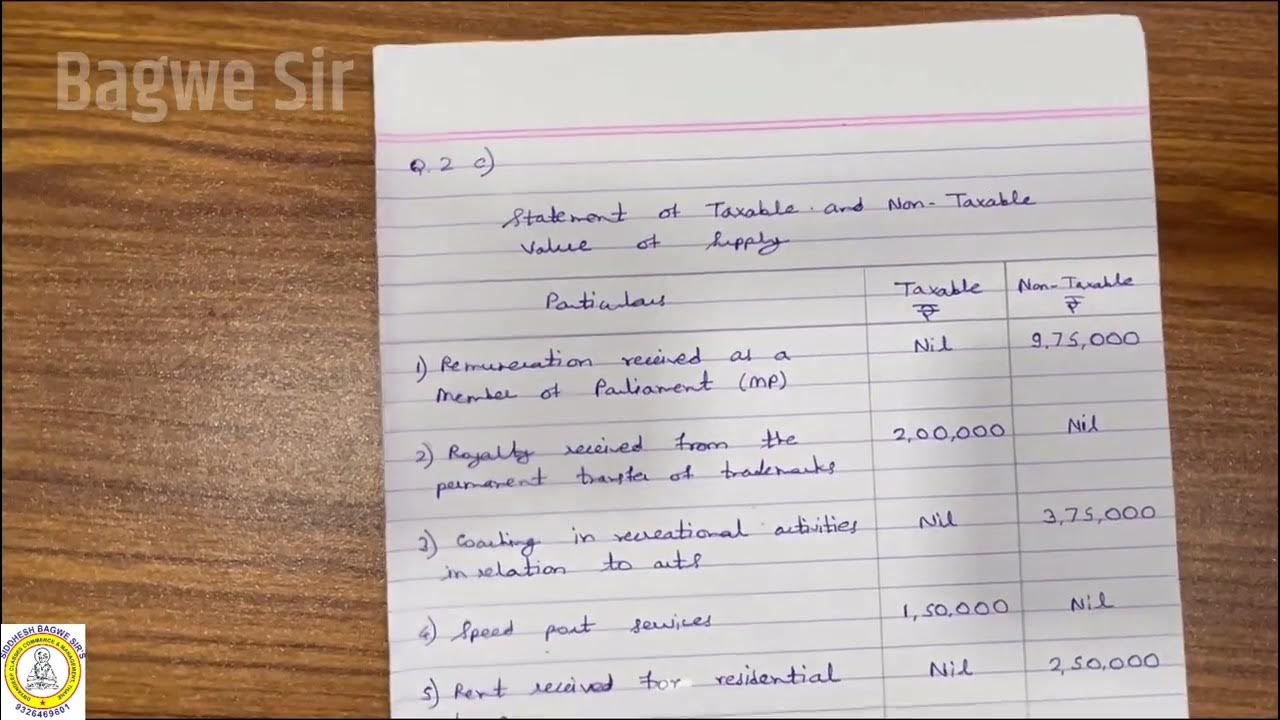 Bagwe Sir
Q.2 c)
Statement of Taxable and Non-Taxable
value of Supply
Particulars Taxable ₹ Non-Taxable ₹
1) Remuneration received as a Nil 9,75,000
Member of Parliament (MP)
2) Royalty received from the 2,00,000 Nil
permanent transfer of trademarks
3) Coaching in recreational activities Nil 3,75,000
in relation to arts
4) Speed post services 1,50,000 Nil
5) Rent received for residential Nil 2,50,000
SIDDHESH BAGWE SIR'S
DNYANDEEP CLASSES COMMERCE & MANAGEMENT, THANE
9326469601